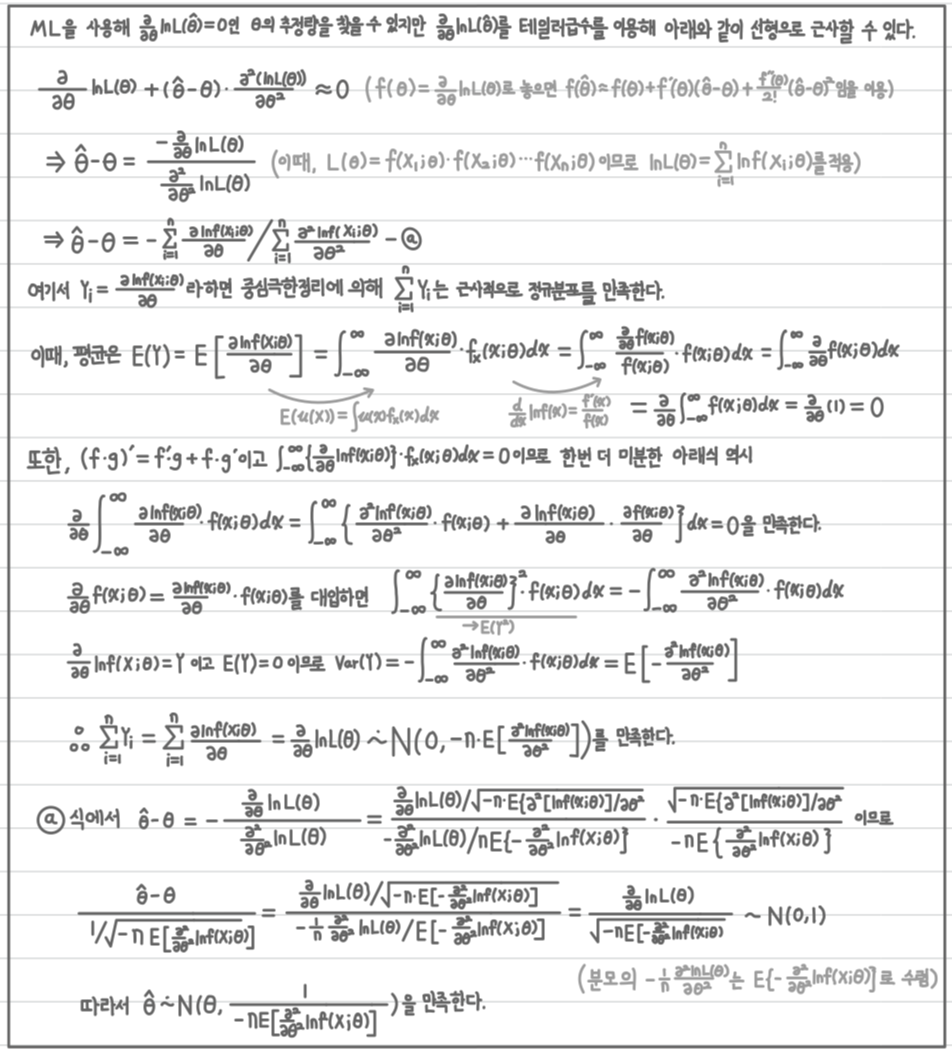 ML을 사용해 ∂/∂θ lnL(θ̂)=0인 θ의 추정량을 찾을 수 있지만 ∂/∂θ lnL(θ̂)를 테일러급수를 이용해 아래와 같이 선형으로 근사할 수 있다.
∂/∂θ lnL(θ) + (θ̂-θ)·∂²(lnL(θ))/∂θ² ≈ 0 (f(θ) = ∂/∂θ lnL(θ)로 놓으면 f(θ̂) ≈ f(θ)+f'(θ)(θ̂-θ)+f''(θ)/2!(θ̂-θ)²임을 이용)
⇒ θ̂-θ = -∂/∂θ lnL(θ) / ∂²/∂θ² lnL(θ) (이때, L(θ)=f(X₁;θ)·f(X₂;θ)···f(Xn;θ)이므로 lnL(θ)=Σ(i=1→n) lnf(Xi;θ)를 적용)
⇒ θ̂-θ = -Σ(i=1→n) ∂lnf(Xi;θ)/∂θ / Σ(i=1→n) ∂²lnf(Xi;θ)/∂θ² - ⓐ
여기서 Yi = ∂lnf(Xi;θ)/∂θ 라하면 중심극한정리에 의해 Σ(i=1→n) Yi는 근사적으로 정규분포를 만족한다.
이때, 평균은 E(Y) = E[∂lnf(X;θ)/∂θ] = ∫(-∞→∞) ∂lnf(x;θ)/∂θ · fx(x;θ)dx = ∫(-∞→∞) ∂/∂θ f(x;θ) / f(x;θ) · f(x;θ)dx = ∫(-∞→∞) ∂/∂θ f(x;θ)dx
E(u(X))=∫u(x)fx(x)dx d/dx lnf(x)=f'(x)/f(x) = ∂/∂θ ∫(-∞→∞) f(x;θ)dx = ∂/∂θ (1) = 0
또한, (f·g)'=f'·g+f·g'이고 ∫(-∞→∞) {∂/∂θ lnf(x;θ)}·fx(x;θ)dx=0이므로 한번 더 미분한 아래식 역시
∂/∂θ ∫(-∞→∞) ∂lnf(x;θ)/∂θ · f(x;θ)dx = ∫(-∞→∞) {∂²lnf(x;θ)/∂θ² · f(x;θ) + ∂lnf(x;θ)/∂θ · ∂f(x;θ)/∂θ}dx=0을 만족한다.
∂/∂θ f(x;θ) = ∂lnf(x;θ)/∂θ · f(x;θ)를 대입하면 ∫(-∞→∞) {∂lnf(x;θ)/∂θ}² · f(x;θ)dx = -∫(-∞→∞) ∂²lnf(x;θ)/∂θ² · f(x;θ)dx
→E(Y²)
∂/∂θ lnf(X;θ)=Y 이고 E(Y)=0 이므로 Var(Y) = -∫(-∞→∞) ∂²lnf(x;θ)/∂θ² · f(x;θ)dx = E[-∂²lnf(x;θ)/∂θ²]
∴ Σ(i=1→n) Yi = Σ(i=1→n) ∂lnf(X;θ)/∂θ = ∂/∂θ lnL(θ) ∼̇ N(0, -n·E[∂²lnf(x;θ)/∂θ²])를 만족한다.
ⓐ 식에서 θ̂-θ = - ∂/∂θ lnL(θ) / ∂²/∂θ² lnL(θ) = ∂/∂θ lnL(θ)/√(-n·E{∂²[lnf(x;θ)]/∂θ²}) / -∂²/∂θ² lnL(θ)/nE{-∂²/∂θ² lnf(X;θ)} · √(-n·E{∂²[lnf(X;θ)]/∂θ²}) / -nE{∂²/∂θ² lnf(X;θ)} 이므로
θ̂-θ / 1/√(-nE[∂²/∂θ² lnf(X;θ)]) = ∂/∂θ lnL(θ)/√(-n·E[-∂²/∂θ² lnf(X;θ)]) / -1/n ∂²/∂θ² lnL(θ)/E[-∂²/∂θ² lnf(X;θ)] = ∂/∂θ lnL(θ) / √(-nE[-∂²/∂θ² lnf(x;θ)]) ~ N(0,1)
(분모의 -1/n ∂²lnL(θ)/∂θ²는 E{-∂²/∂θ² lnf(X;θ)]로 수렴)
따라서 θ̂ ∼̇ N(θ, 1/-nE[∂²/∂θ² lnf(X;θ)])을 만족한다.